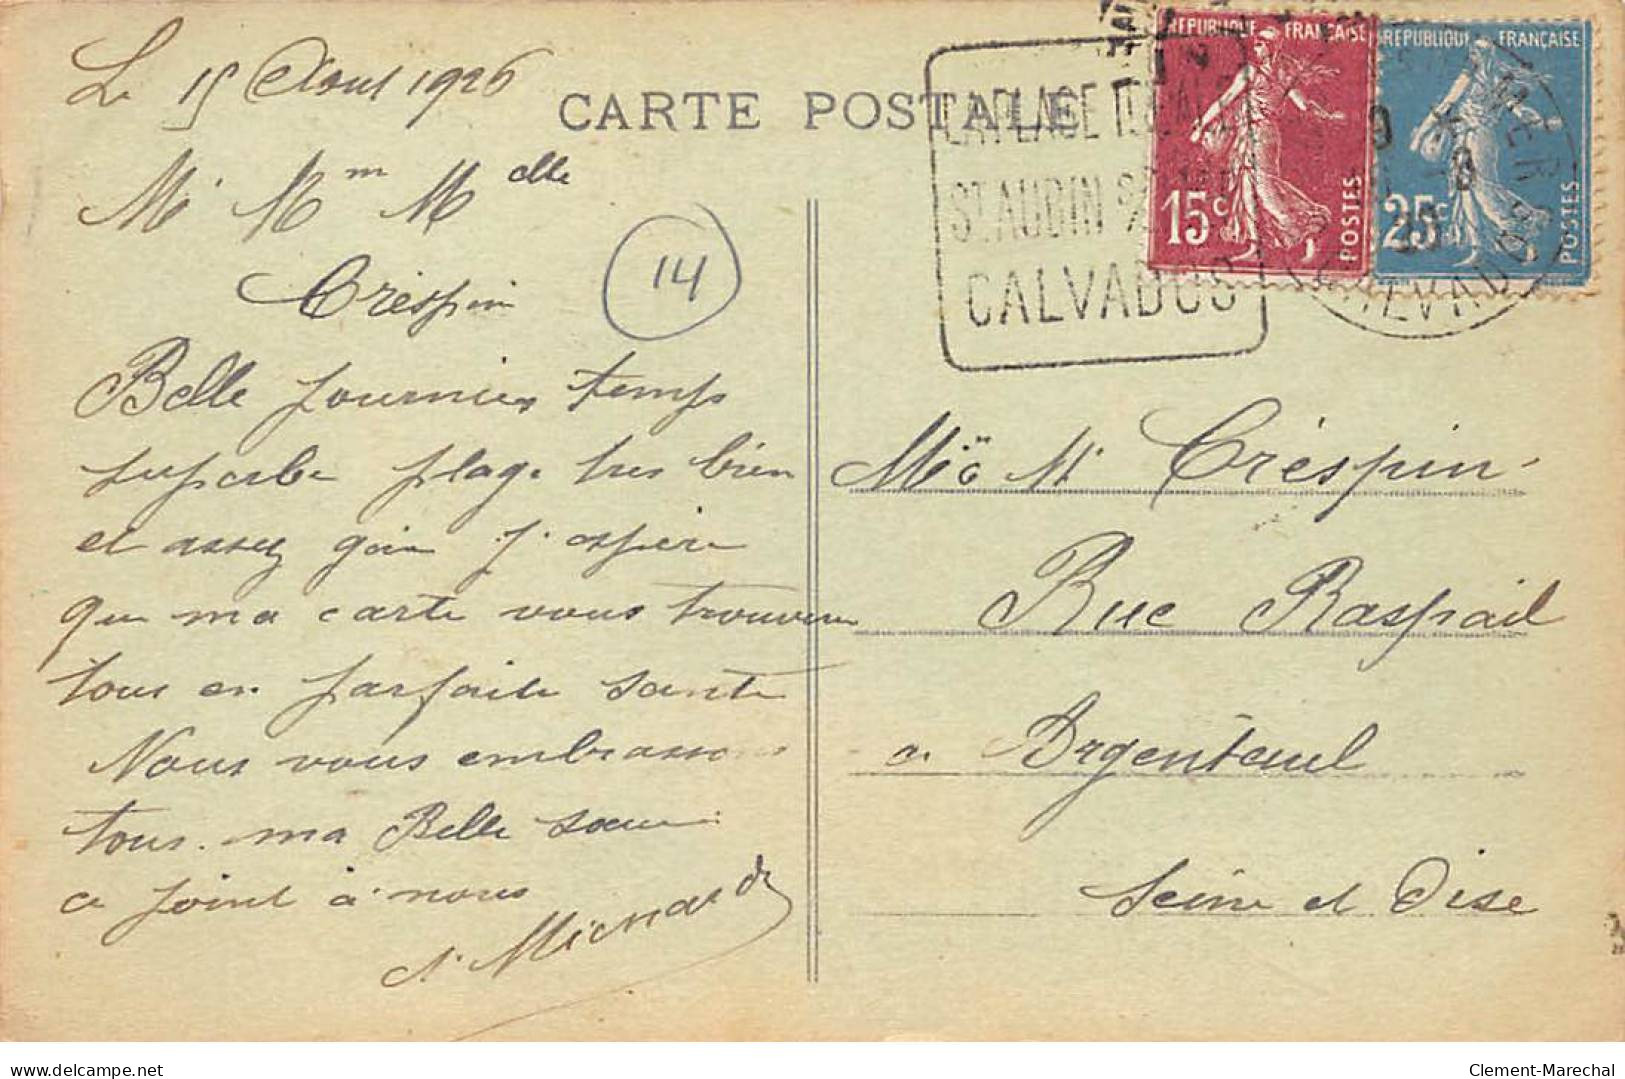 Le 15 Aout 1926
CARTE POSTALE
Mr Mm Melle
Crespin
14
Belle journies temps
superbe plage tres bien
et assez gaie j'espere
que ma carte vous trouvera
tous en parfaite sante
Nous vous embrassons
tous. ma Belle soeur
ce joint à nous
Michard
REPUBLIQUE FRANÇAISE
15c
POSTES
REPUBLIQUE FRANÇAISE
25c
POSTES
LA PLAGE
ST AUBIN S/
CALVADOS
MER
CALVADOS
Mr Créspin
Rue Raspail
a Argenteuil
Seine et Oise
www.delcampe.net
Clement-Marechal